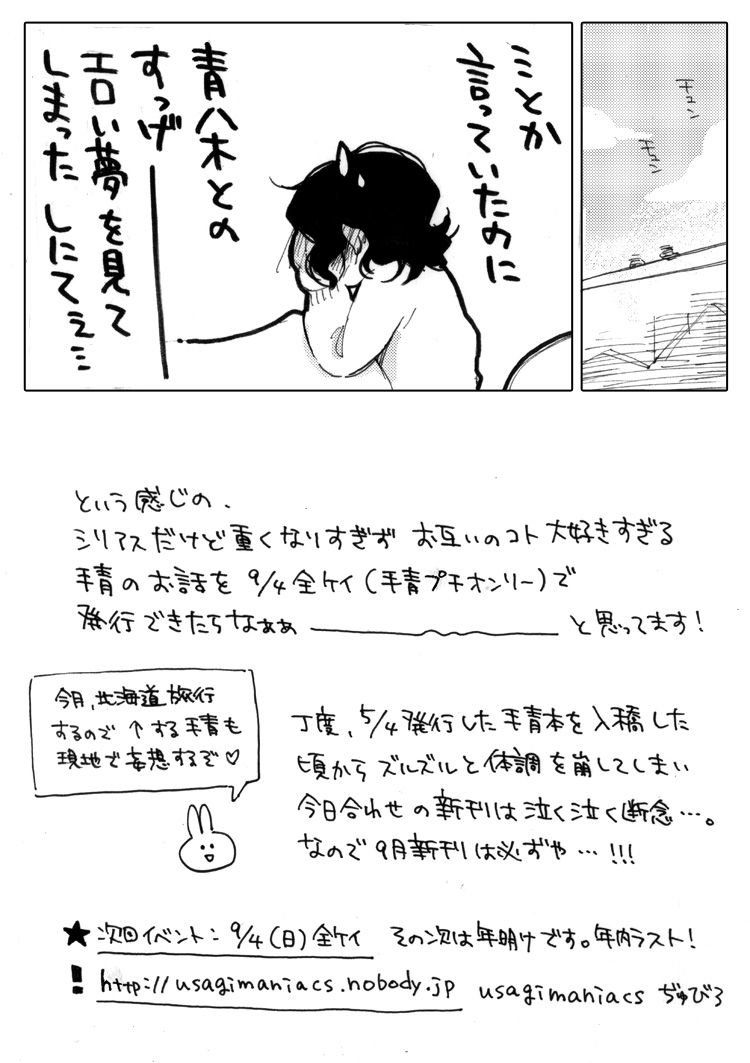 チュン
チュン
ミとか
言っていたのに
青八木との
すっげ
エロい夢を見て
しまった しにてえ…
という感じの、
シリアスだけど重くなりすぎず お互いのコト大好きすぎる
手青のお話を 9/4全ケイ(手青プチオンリー)で
発行できたらなぁぁ――――と思ってます!
今月、北海道旅行
するので ↑する手青も
現地で妄想するぞ♡
丁度、5/4発行した手青本を入稿した
頃からズルズルと体調を崩してしまい
今日合わせの新刊は泣く泣く断念…。
なので9月新刊は必ずや…!!!
★次回イベント:9/4(日)全ケイ その次は年明けです。年内ラスト!
! http://usagimaniacs.nobody.jp usagimaniacs ぢゅびろ